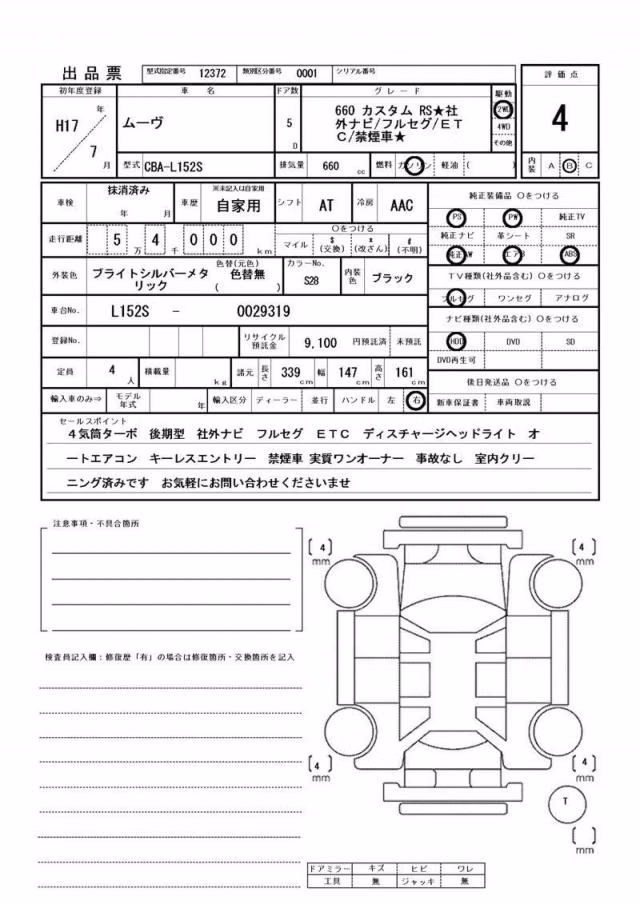 出品票 型式指定番号 12372 類別区分番号 0001 シリアル番号
評価点
初年度登録 車名 ドア数 グレード 駆動
H17 年
7 月
ムーヴ
5 D
660 カスタム RS★社
外ナビ/フルセグ/ET
C/禁煙車★
2WD
4WD
その他
4
型式 CBA-L152S 排気量 660 cc 燃料 ガソリン 軽油 ( )
内装 A B C
車検 抹消済み
年 月
車歴 ※未記入は自家用
自家用
シフト AT 冷房 AAC
純正装備品 Oをつける
PS PW 純正TV
純正ナビ 革シート SR
純正AW エアB ABS
走行距離 5万 4千 0 0 0 km
Oをつける
マイル $ (交換) * (改ざん) # (不明)
TV種類(社外品含む) Oをつける
フルセグ ワンセグ アナログ
外装色 ブライトシルバーメタ
リック
色替(元色)
色替無
( )
カラーNo.
S28
内装色 ブラック
車台No. L152S - 0029319
ナビ種類(社外品含む) Oをつける
HDD DVD SD
DVD再生可
登録No. リサイクル
預託金
9,100 円預託済 未預託
定員 4 人 積載量 kg 諸元 長さ 339 cm 幅 147 cm 高さ 161 cm
後日発送品 Oをつける
新車保証書 車両取説
輸入車のみ⇒ モデル
年式 年 輸入区分 ディーラー 並行 ハンドル 左 右
セールスポイント
4気筒ターボ 後期型 社外ナビ フルセグ ETC ディスチャージヘッドライト オ
ートエアコン キーレスエントリー 禁煙車 実質ワンオーナー 事故なし 室内クリー
ニング済みです お気軽にお問い合わせくださいませ
注意事項・不具合箇所
[ 4 ] mm
[ 4 ] mm
検査員記入欄:修復歴「有」の場合は修復箇所・交換箇所を記入
[ 4 ] mm
[ 4 ] mm
T
[ ] mm
ドアミラー キズ ヒビ ワレ
工具 無 ジャッキ 無